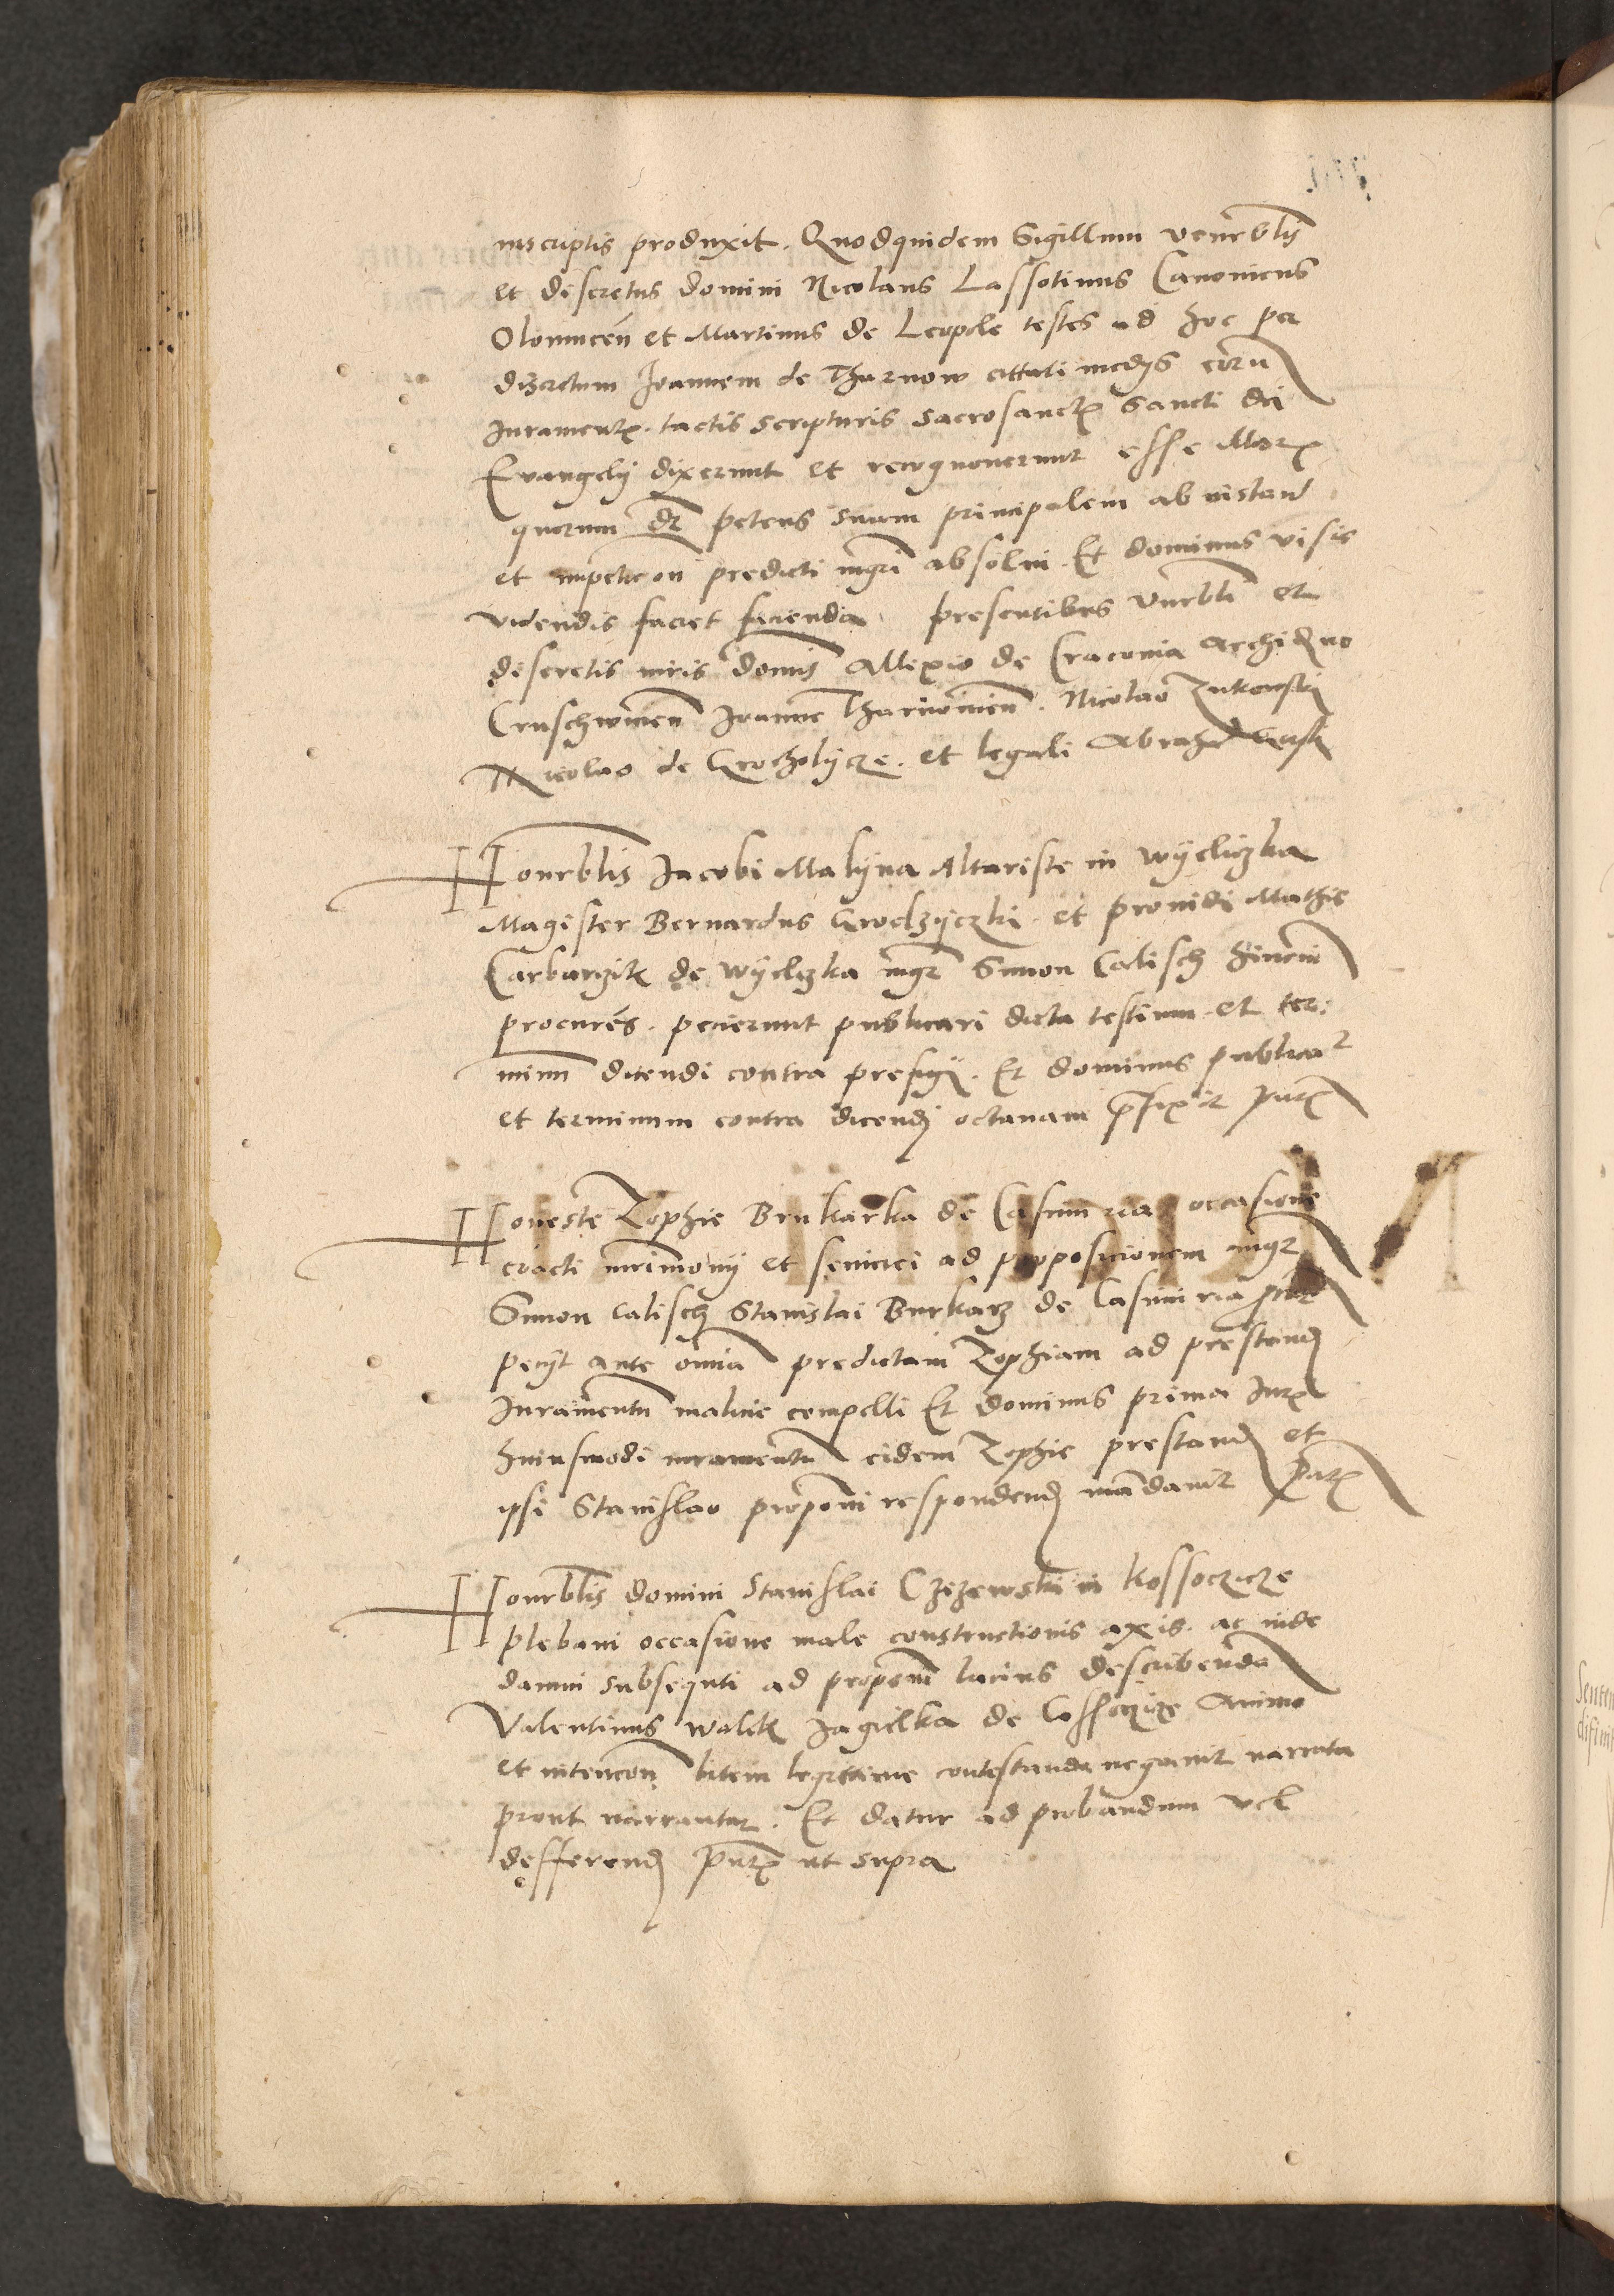 inscriptis produxit. Quodquidem Sigillum venerblis
et discretus domini Nicolaus Lassotinus Canonicus
Olomucen et Martinus de Leopole testes ad hoc per
discretum Joannem de Tharnow cittati medys eoru
Jurament. tactis scripturis sacrosanct Sancti dei
Evangely dixerunt et recognoverunt esse
quorum petens suum principalem ab instand
et impeticon predicti mgri absolvi. Et dominus visis
videndis faciet facienda presentibus venerbli et
discretis viris domis Allexio de Cracovia Archidno
Cruschwicen Joanne Tharnowien. Nicolao Zukowski
Nicolao de Grocholycze. et legali
Honrblis Jacobi Malyna Altariste in Wyeliczka
Magister Bernardus Grodzyczki. et providi Mathis
Carbarzik de Wyeliczka mgr Simon Calisch
procures. pecierunt publicari dicta testium et ter:
minum dicendi contra prefigi. Et dominus publicat
et terminum contra dicendi octavam prefixit
Honeste Zophie Brukarka de Casimiria occasione
cracti mrimony et secuti ad proposicionem mgr
Simon Calisch Stanislai Burkarz de Casimiria
pecyt ante omnia predictam Zophiam ad prestand
Juramentu malicie compelli Et dominus prima Jur
huiusmodi iuramentu eidem Zophie prestand et
ipsi Stanislao proponi respondend mandavit
Honrblis domini Stanislai Czizewski in Kossoczicze
plebani occasione male constructionis axis. ac inde
damni subsequti ad proponem lacius describenda
Valentinus Walek Jagielka de Cossoczicze Animo
et intencon litem legittime contestanda negavit narrata
prout narrantur. Et datur ad probandum vel
defferend ut supra